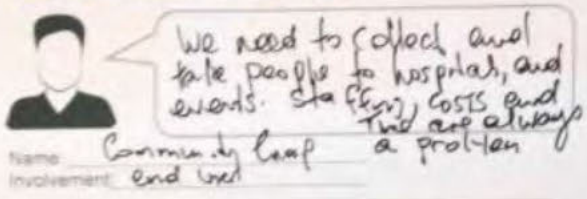 We need to collect and
take people to hospitals, and
events. Staffing, costs and
Time are always
a problem
Name: Community
Involvement: end user